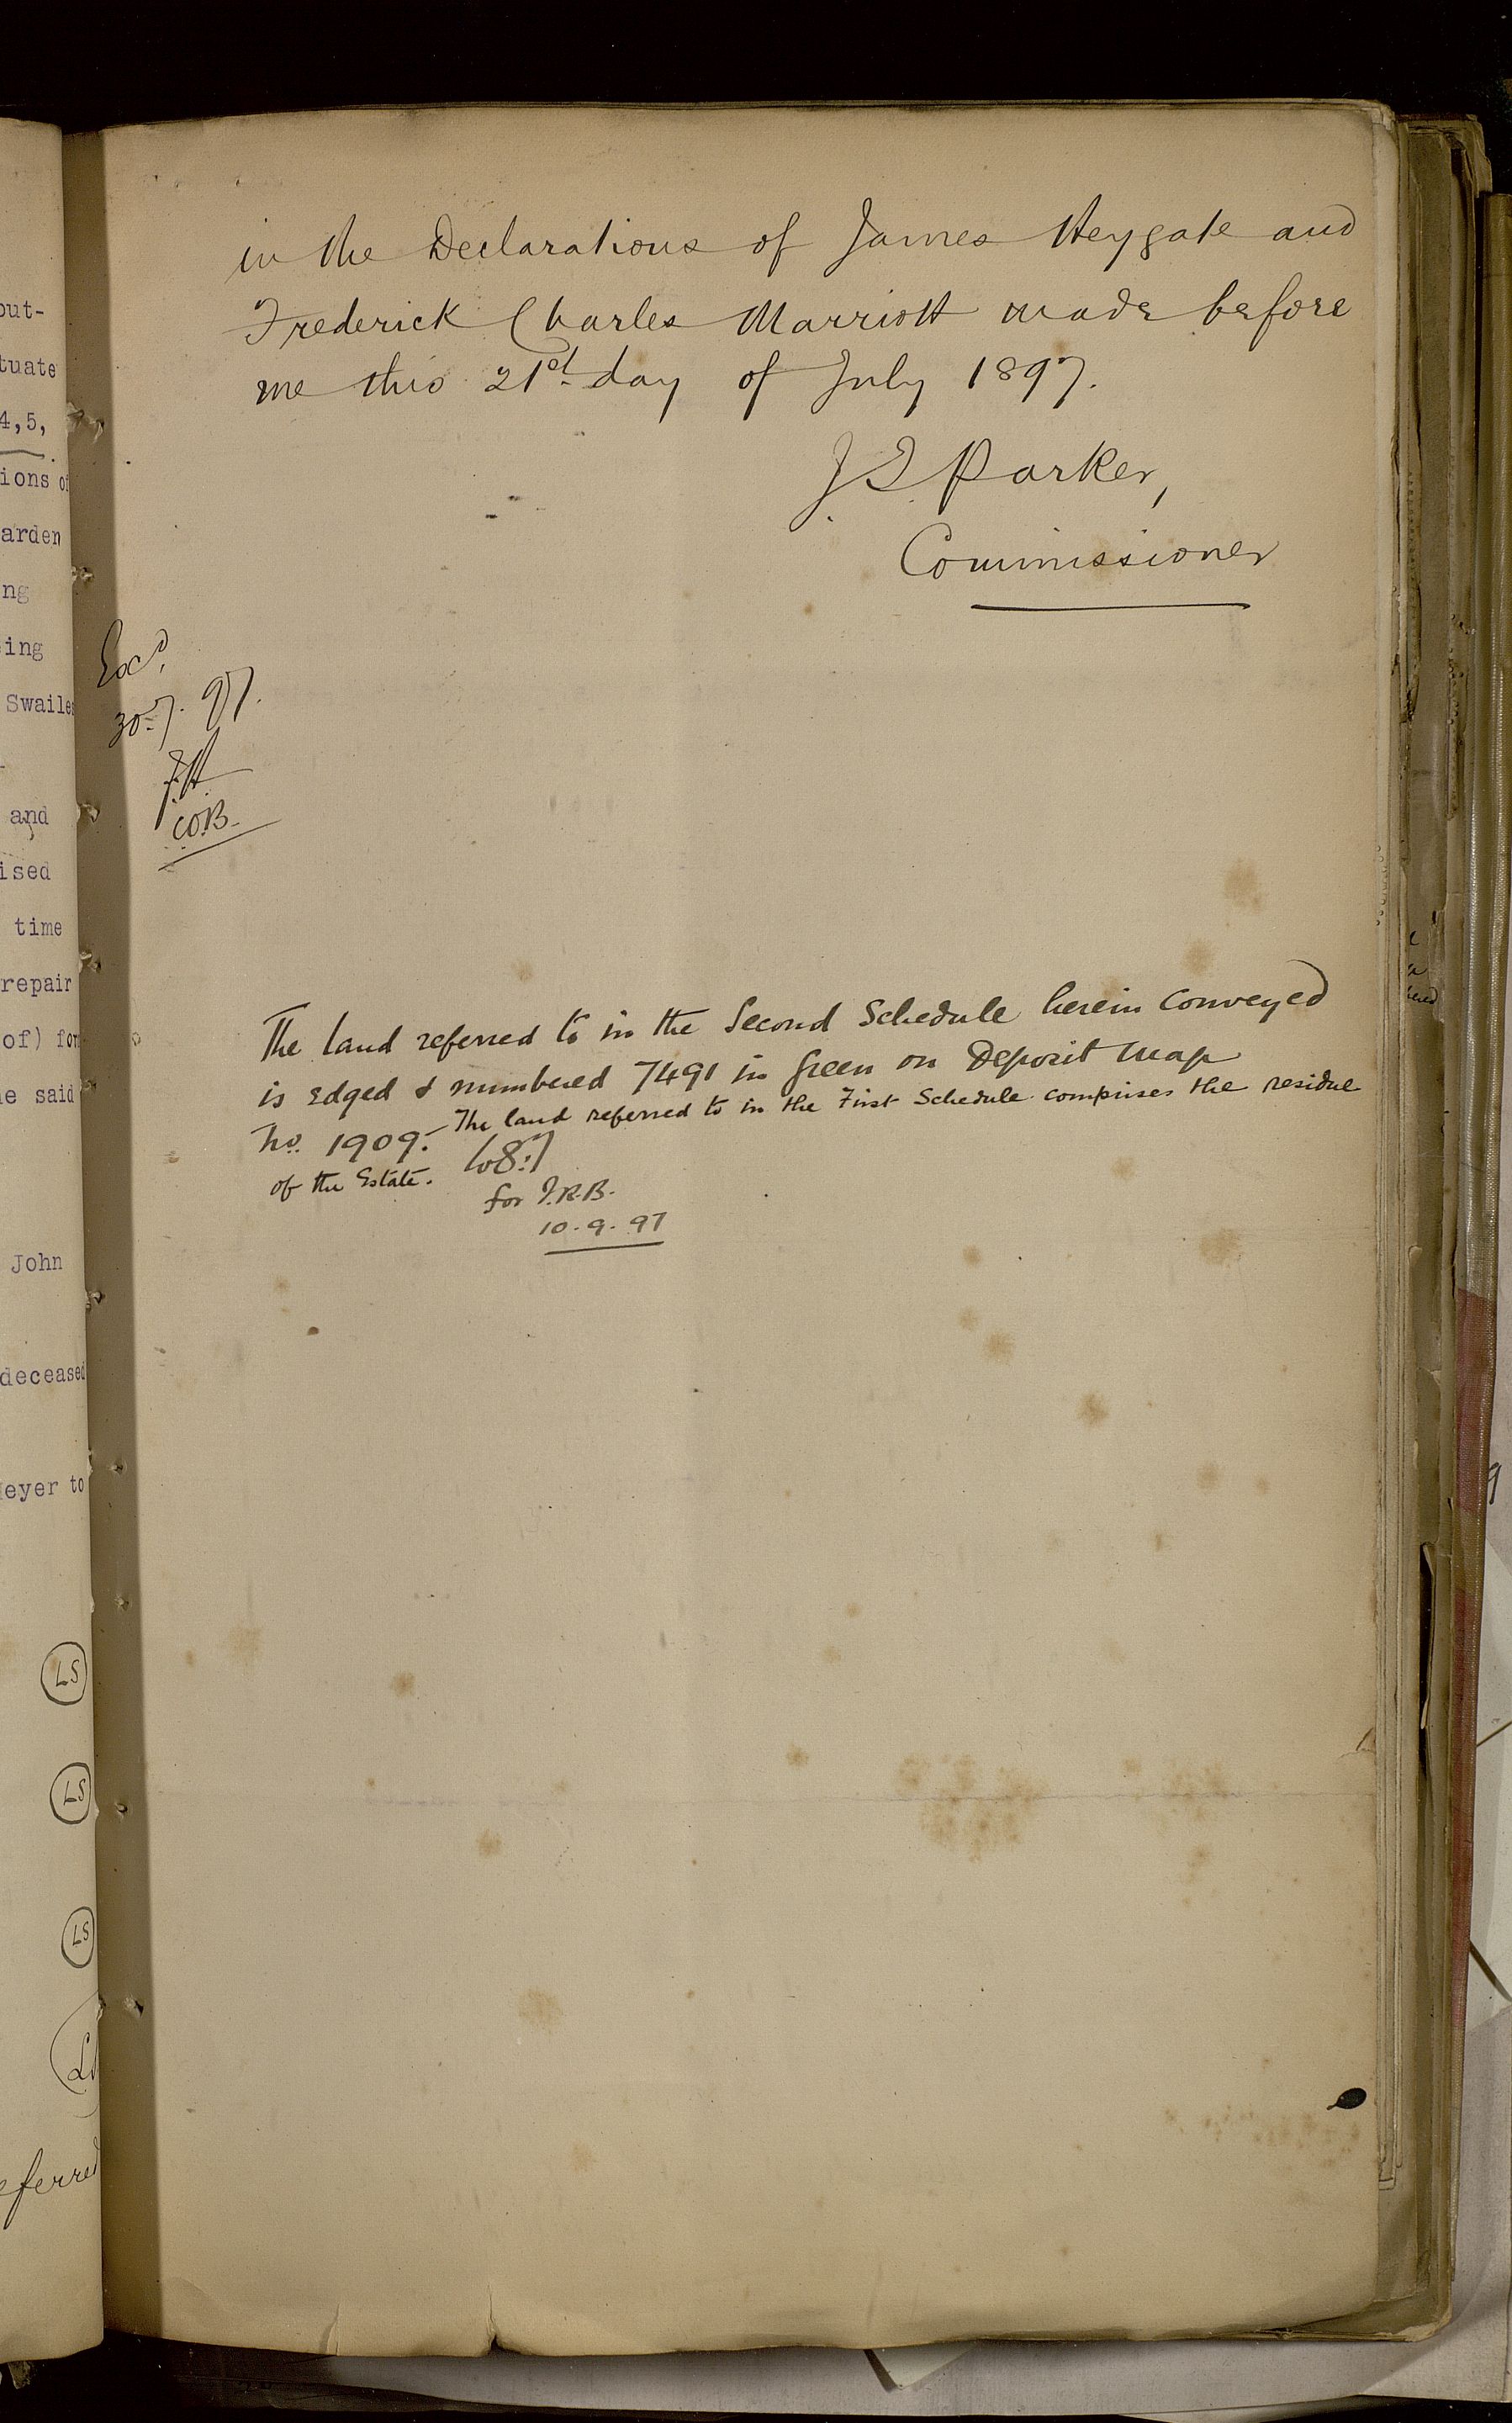 out-
tuate
4,5,
ions of
arden
ng
ing
Swailes
and
ised
time
repair
of) for
e said
John
deceased
eyer to
LS
LS
LS
eferred
in the Declarations of James Heygate and
Frederick Charles Marriott made before
me this 21st day of July 1897.
J S Parker,
Commissioner
Exd.
30.7.97.
F.H.
C.O.B.
The land referred to in the Second Schedule herein conveyed
is edged & numbered 7491 in green on Deposit Map
No. 1909. The land referred to in the First Schedule comprises the residue
of the Estate.
for J.R.B.
10.9.97